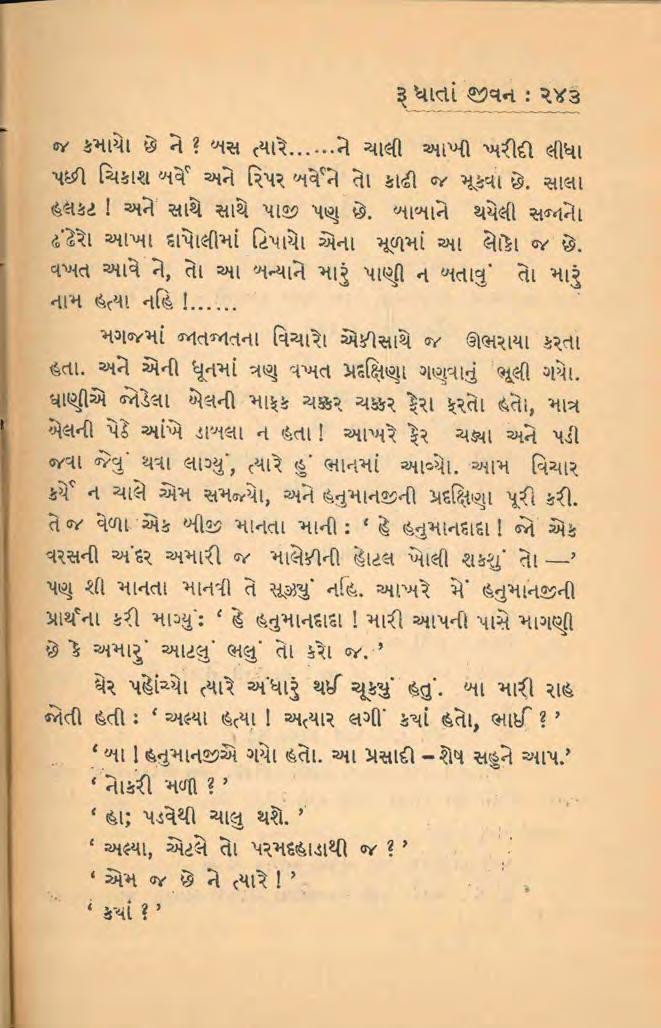 રૂંધાતાં જીવન : ૨૪૩
જ કમાયો છે ને ? બસ ત્યારે......ને ચાલી આખી ખરીદી લીધા
પછી ચિકાશ બર્વે અને રિપર બર્વેને તો કાઢી જ મૂકવા છે. સાલા
હલકટ ! અને સાથે સાથે પાજી પણ છે. બાબાને થયેલી સજાનો
ઢંઢેરો આખા દાપોલીમાં ટિપાયો એના મૂળમાં આ લોકો જ છે.
વખત આવે ને, તો આ બન્યાને મારું પાણી ન બતાવું તો મારું
નામ હત્યા નહિ !......
મગજમાં જાતજાતના વિચારો એકીસાથે જ ઊભરાયા કરતા
હતા. અને એની ધૂનમાં ત્રણ વખત પ્રદક્ષિણા ગણવાનું ભૂલી ગયો.
ઘાણીએ જોડેલા બેલની માફક ચક્કર ચક્કર ફેરા ફરતો હતો, માત્ર
બેલની પેઠે આંખે ડાબલા ન હતા ! આખરે ફેર ચડ્યા અને પડી
જવા જેવું થવા લાગ્યું, ત્યારે હું ભાનમાં આવ્યો. આમ વિચાર
કર્યે ન ચાલે એમ સમજ્યો, અને હનુમાનજીની પ્રદક્ષિણા પૂરી કરી.
તે જ વેળા એક બીજી માનતા માની : ‘ હે હનુમાનદાદા ! જો એક
વરસની અંદર અમારી જ માલેકીની હોટલ ખોલી શકશું તો —’
પણ શી માનતા માનવી તે સૂઝ્યું નહિ. આખરે મેં હનુમાનજીની
પ્રાર્થના કરી માગ્યું : ‘ હે હનુમાનદાદા ! મારી આપની પાસે માગણી
છે કે અમારું આટલું ભલું તો કરો જ. ’
ઘેર પહોંચ્યો ત્યારે અંધારું થઈ ચૂક્યું હતું. બા મારી રાહ
જોતી હતી : ‘ અલ્યા હત્યા ! અત્યાર લગી ક્યાં હતો, ભાઈ ? ’
‘ બા ! હનુમાનજીએ ગયો હતો. આ પ્રસાદી – શેષ સહુને આપ.’
‘ નોકરી મળી ? ’
‘ હા; પડવેથી ચાલુ થશે. ’
‘ અલ્યા, એટલે તો પરમદહાડાથી જ ? ’
‘ એમ જ છે ને ત્યારે ! ’
‘ ક્યાં ? ’